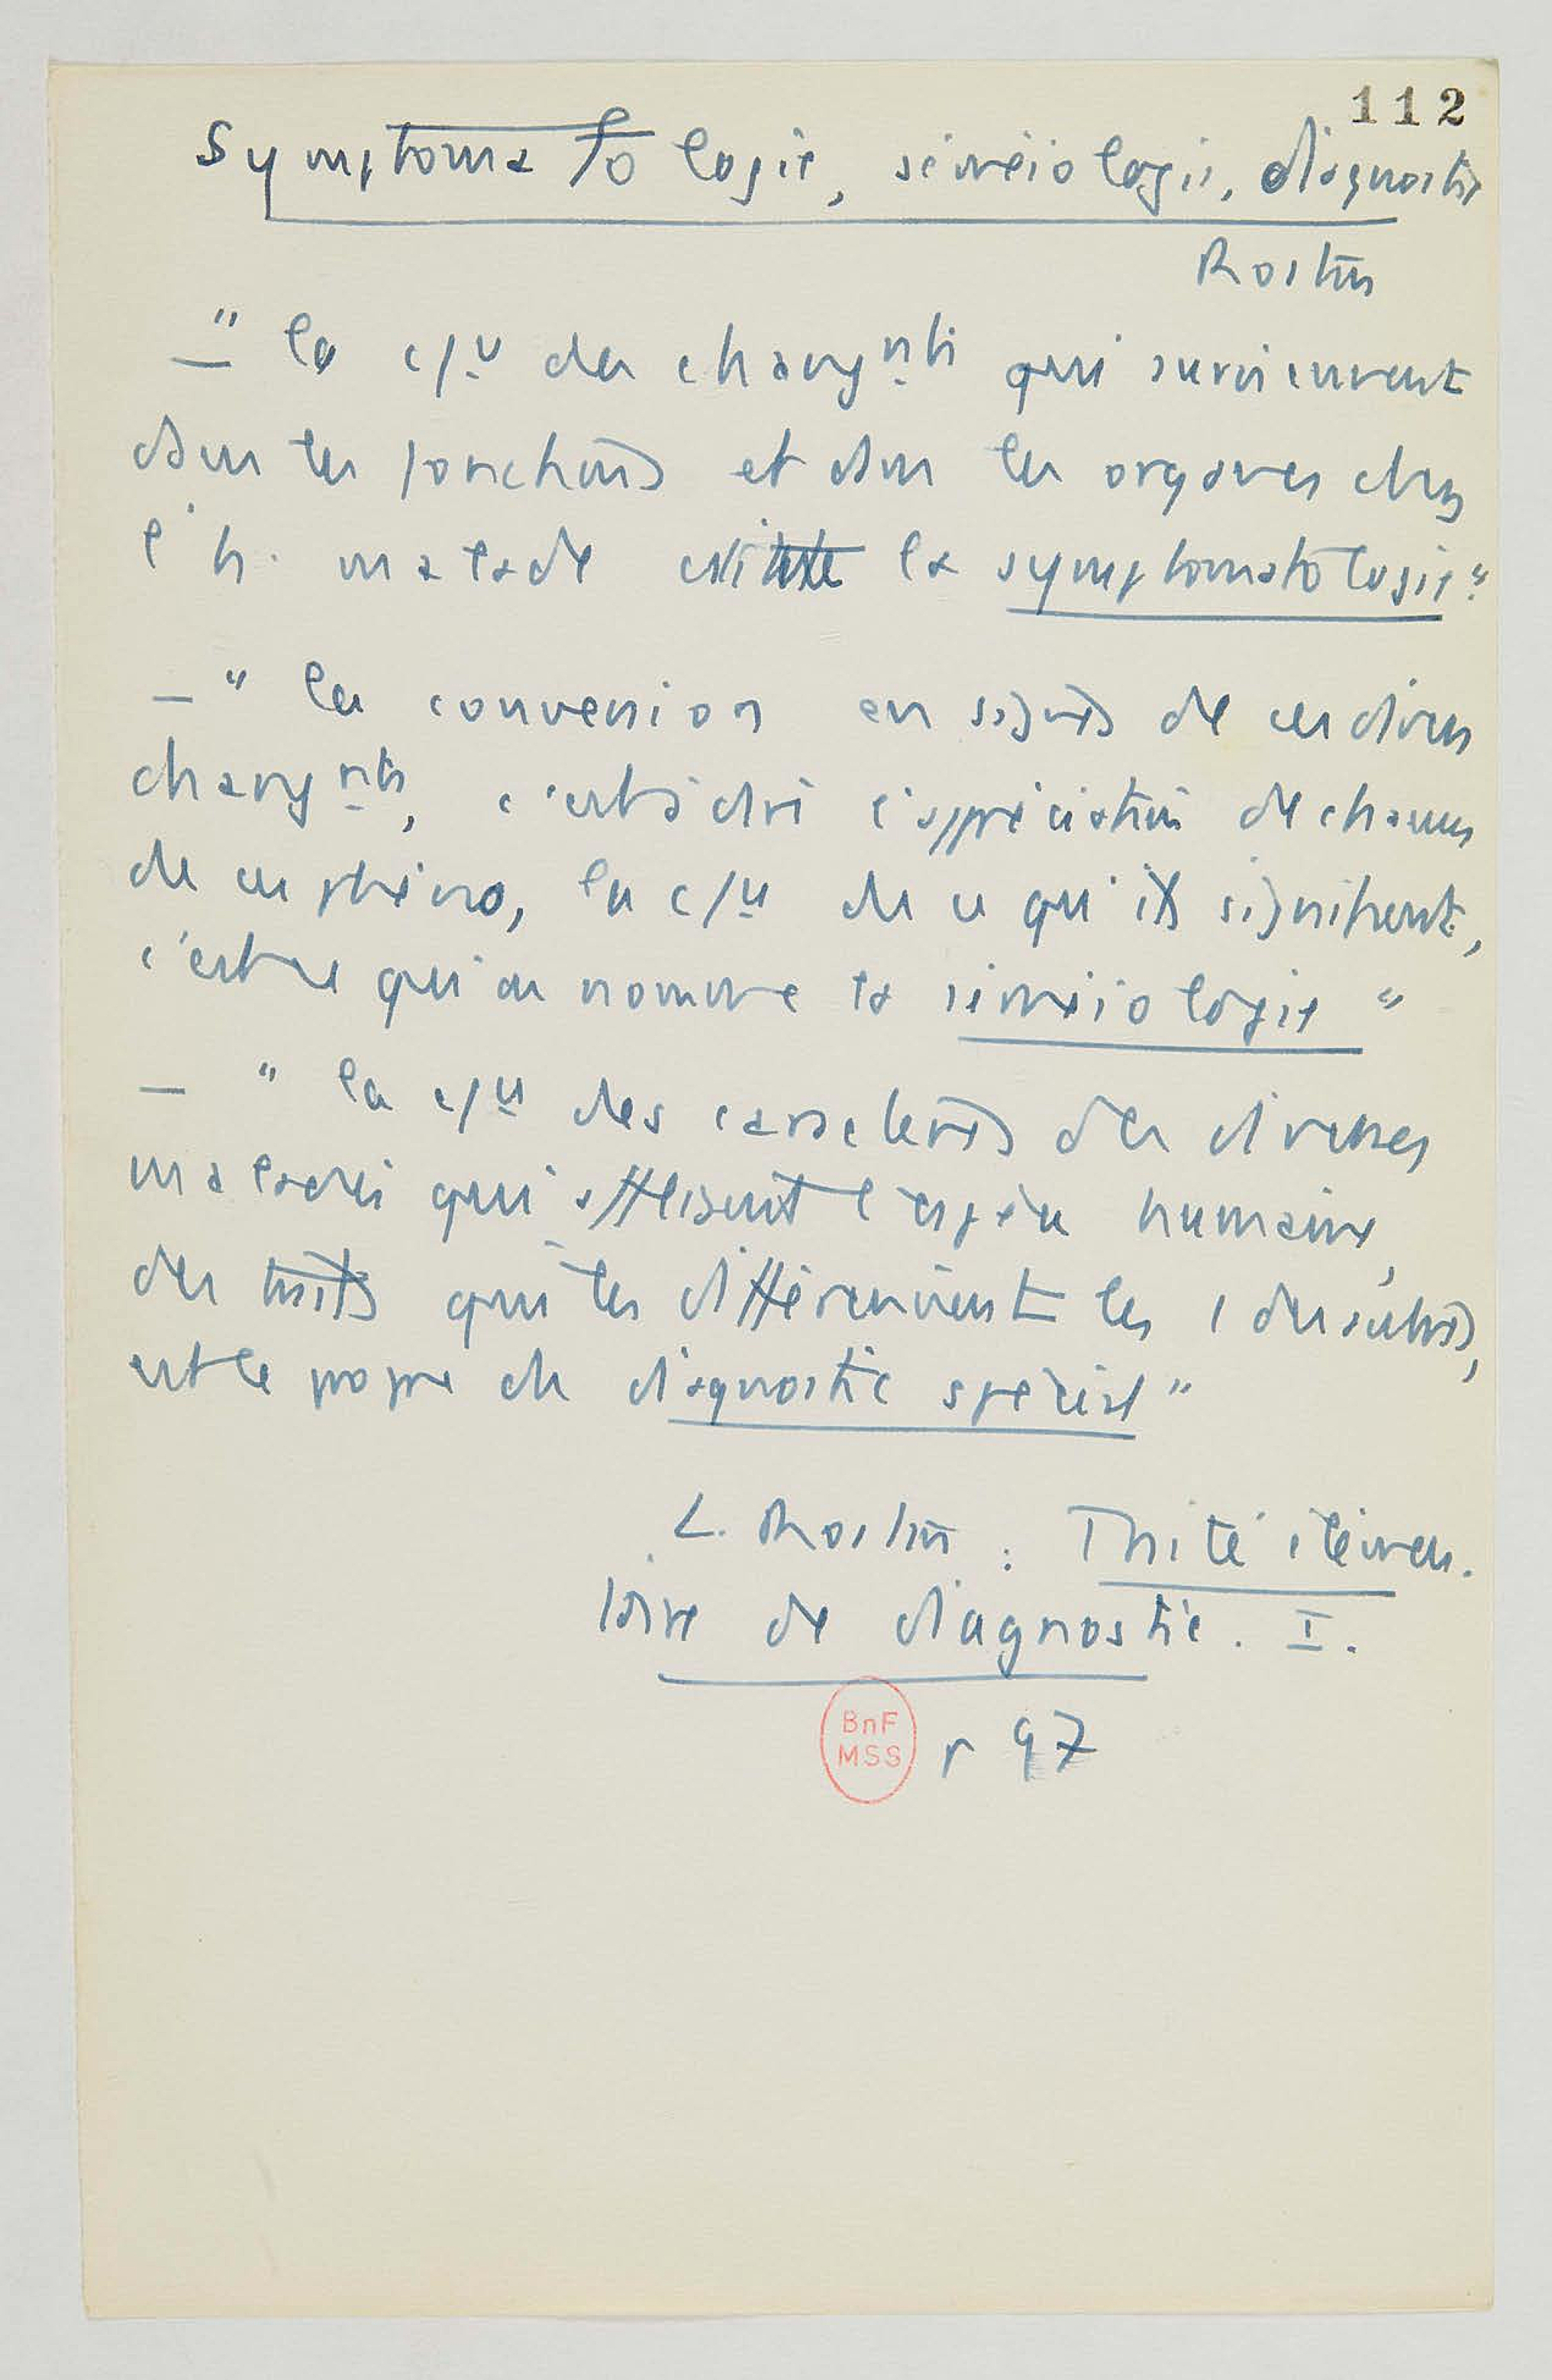 112
Symptomatologie, séméiologie, diagnostic
Rostan
— " la c/ce des changnts qui surviennent
dans les fonctions et dans les organes chez
l'h. malade la symptomatologie"
— " la conversion en signes de ces divers
changnts, c'est à dire l'appréciation de chacun
de ces phéno, la c/ce de ce qu'ils signifient,
c'est ce qu'on nomme la séméiologie "
— " la c/ce des caractères des diverses
maladies qui affligent l'espèce humaine,
des traits qui les différencient les 1 des autres,
est le propre du diagnostic spécial "
L. Rostan : Traité élémen.
taire de diagnostic. I.
BnF
MSS
p 97